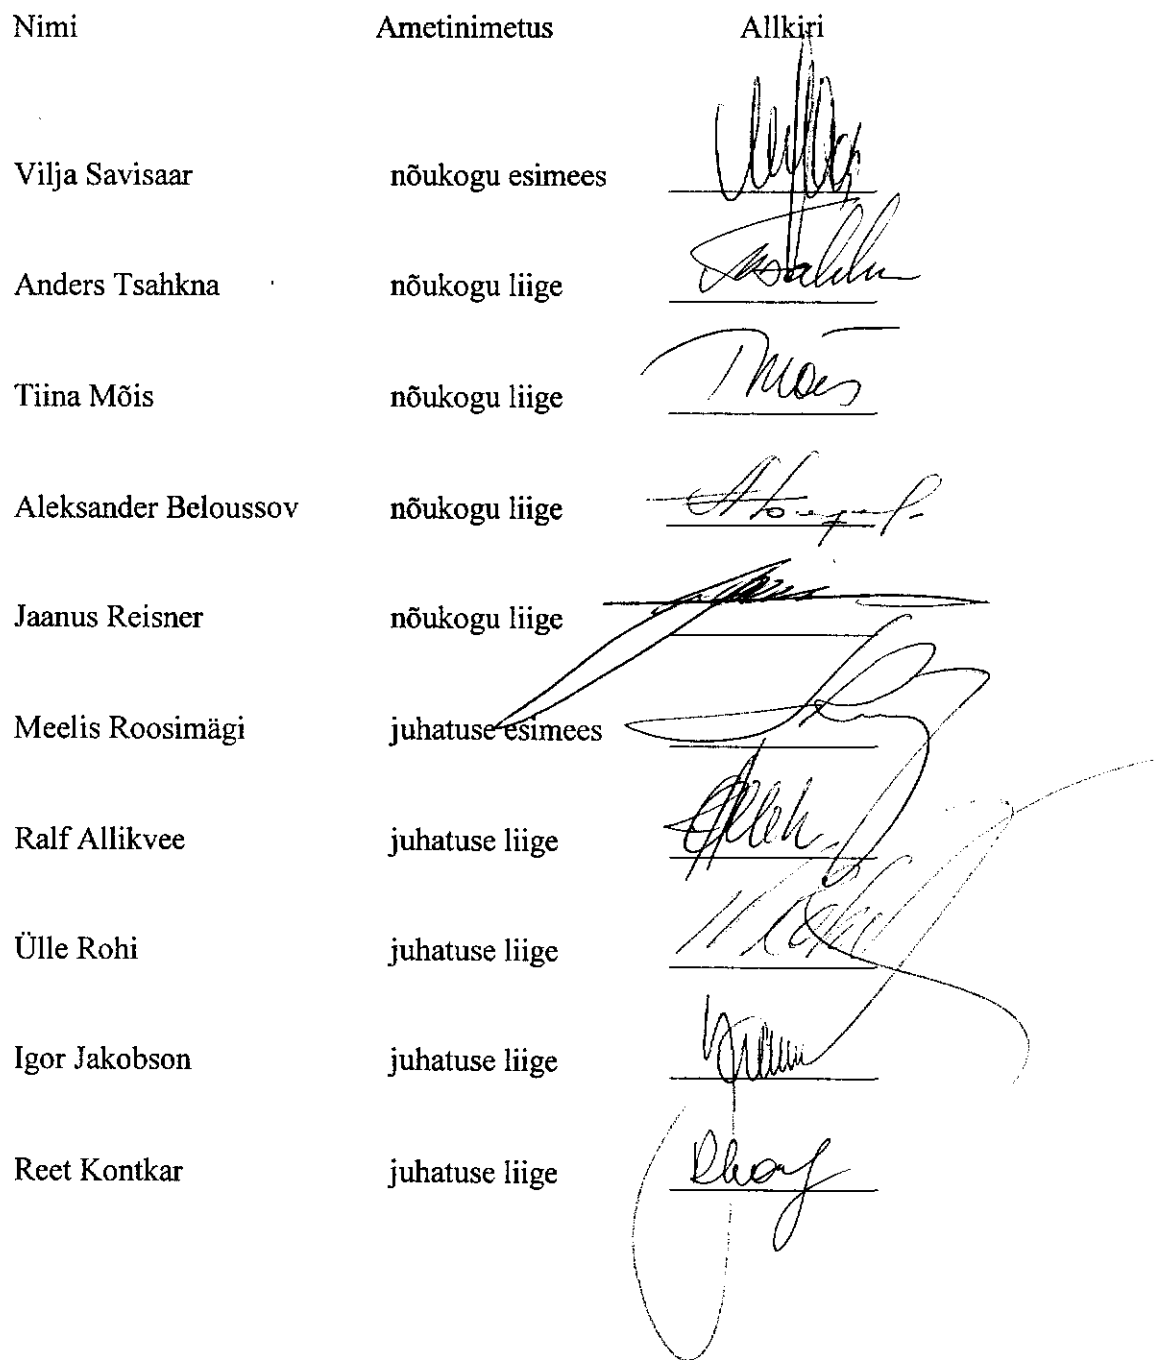 Nimi Ametinimetus Allkiri
Vilja Savisaar nõukogu esimees
Anders Tsahkna nõukogu liige
Tiina Mõis nõukogu liige TMõis
Aleksander Beloussov nõukogu liige
Jaanus Reisner nõukogu liige
Meelis Roosimägi juhatuse esimees
Ralf Allikvee juhatuse liige
Ülle Rohi juhatuse liige
Igor Jakobson juhatuse liige
Reet Kontkar juhatuse liige